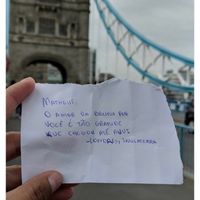 MATHEUS,
O AMOR DA BRUNA POR
VOCÊ É TÃO GRANDE
QUE CHEGOU ATÉ AQUI
- LONDRES, INGLATERRA